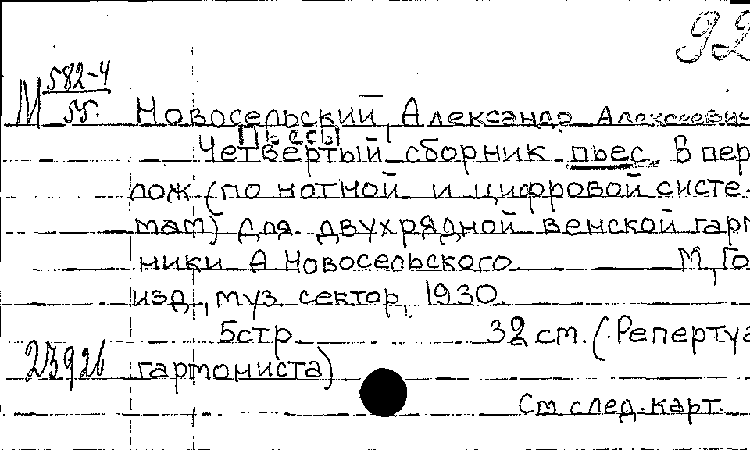 92
М 582-4
55
Новосельский, Александр Алексеевич
Пьесы
Четвертый сборник пьес. В пер
лож (по нотной и цифровой систе-
мам) для двухрядной венской гарм
ники А Новосельского М, Го
изд, муз. сектор, 1930
5стр 32 см. (Репертуа
23926 гармониста)
См след. карт.